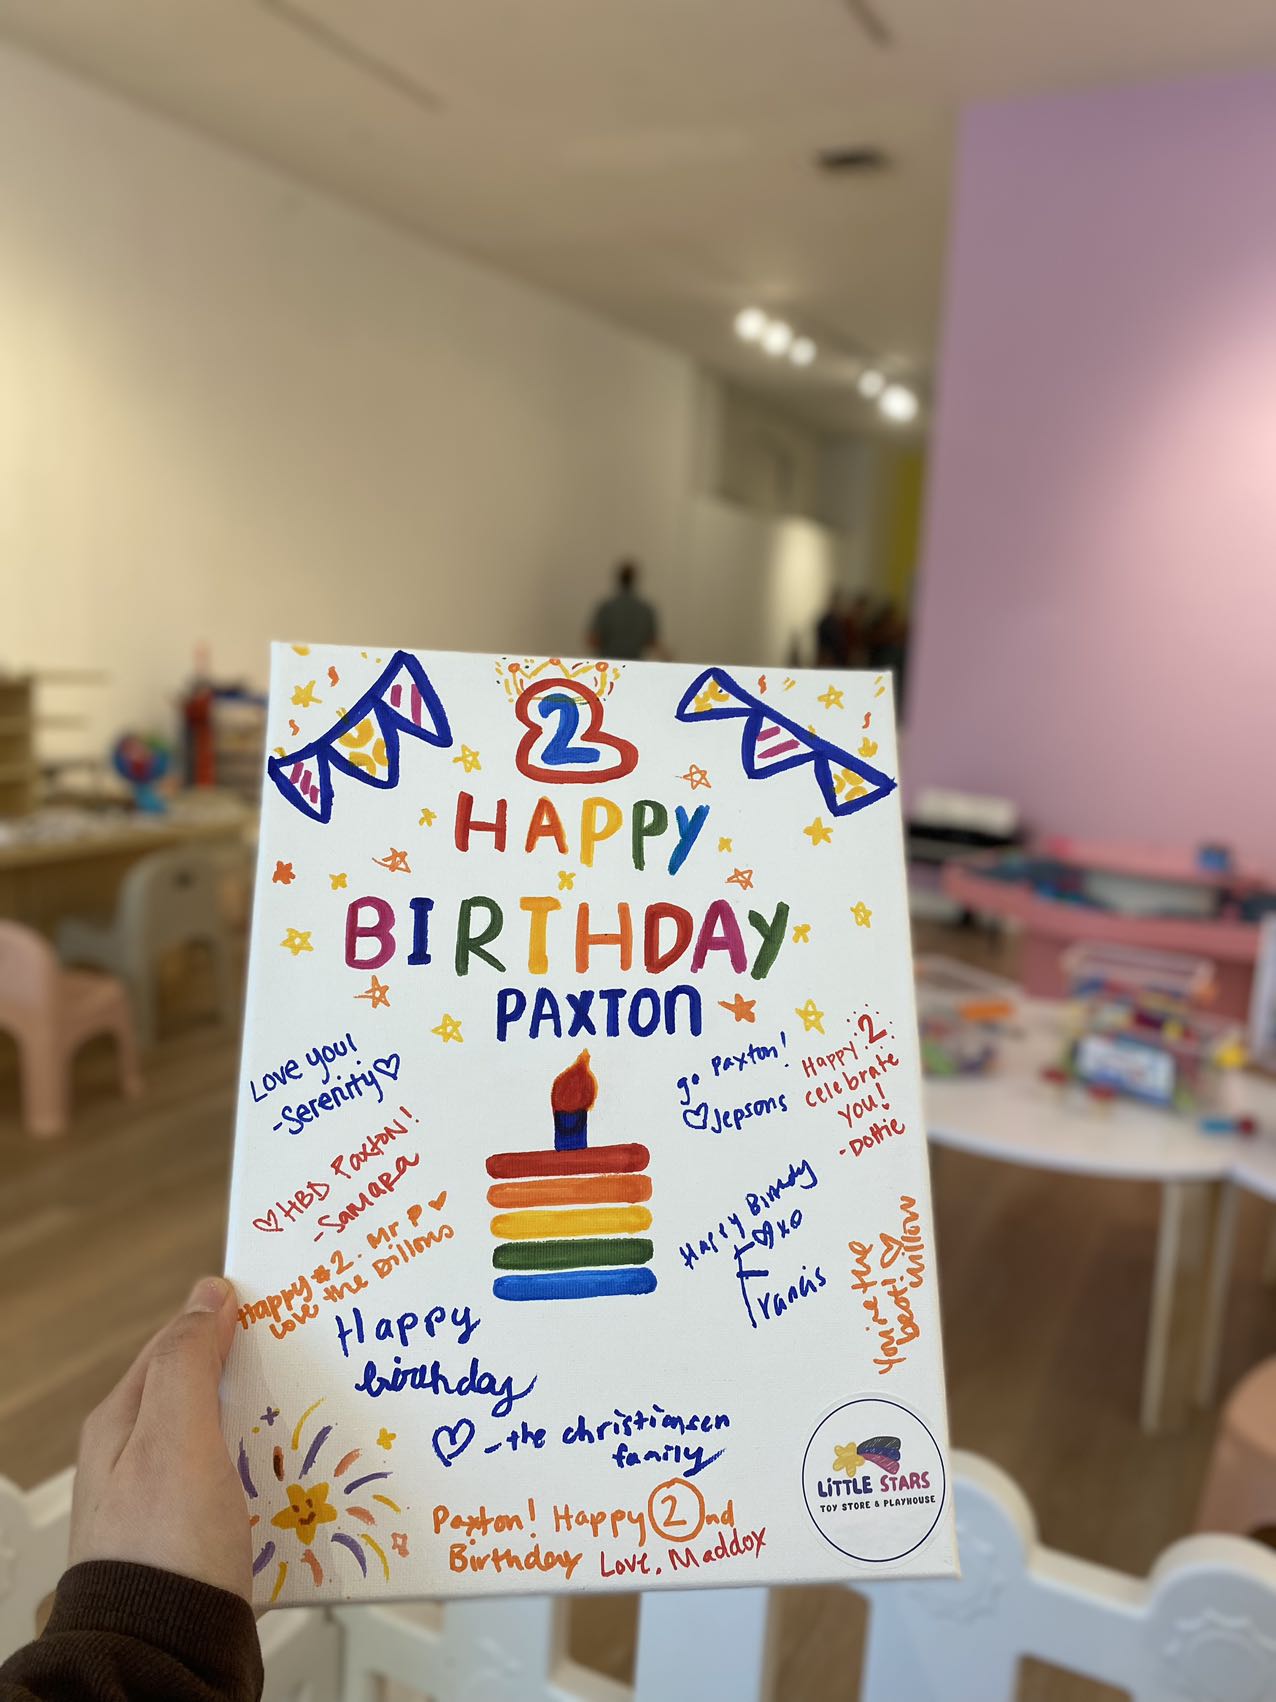 2
HAPPY
BIRTHDAY
PAXTON
Love you!
-Serenity
HBD Paxton!
-Samara
Happy #2 Mr P
love the Dillons
Happy
birthday
-the christiansen
family
Paxton! Happy 2nd
Birthday Love, Maddox
go Paxton!
Jepsons
Happy 2
celebrate
you!
-Dottie
Happy
xo
Francis
You're the
best! willow
LiTTLE STARS
TOY STORE & PLAYHOUSE